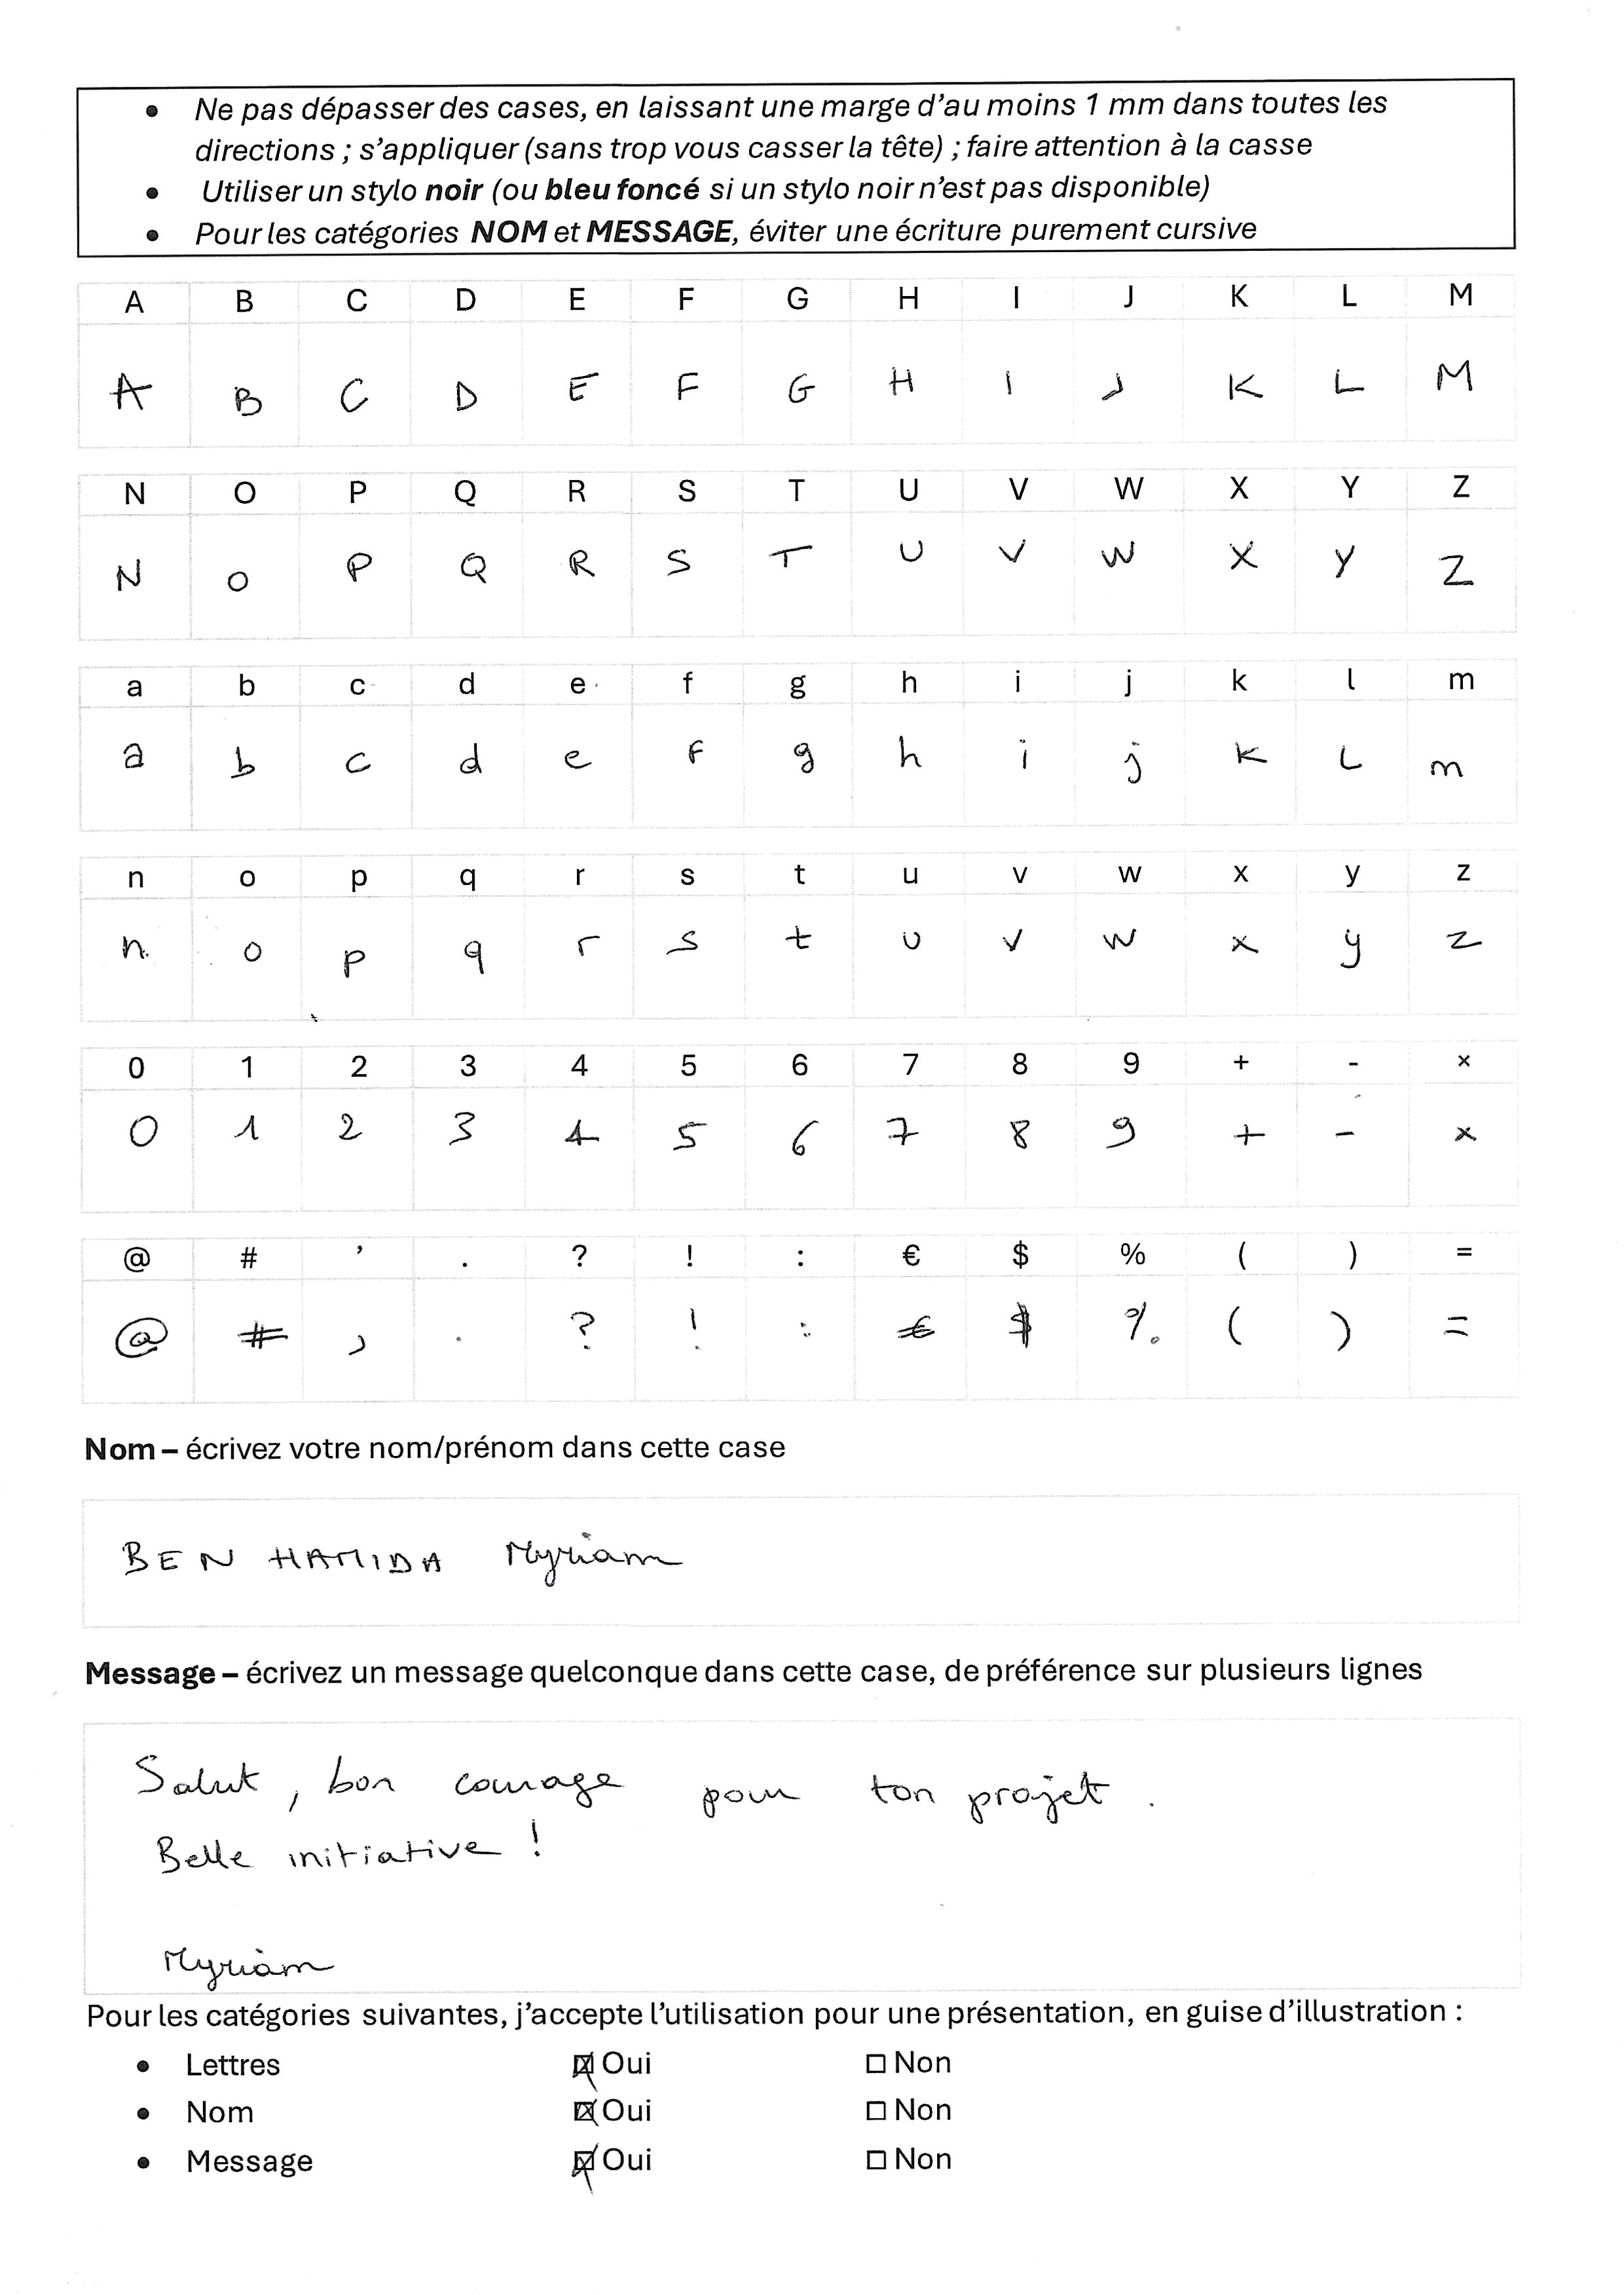 • Ne pas dépasser des cases, en laissant une marge d’au moins 1 mm dans toutes les
directions ; s’appliquer (sans trop vous casser la tête) ; faire attention à la casse
• Utiliser un stylo noir (ou bleu foncé si un stylo noir n’est pas disponible)
• Pour les catégories NOM et MESSAGE, éviter une écriture purement cursive
A B C D E F G H I J K L M
A B C D E F G H I J K L M
N O P Q R S T U V W X Y Z
N O P Q R S T U V W X Y Z
a b c d e f g h i j k l m
a b c d e f g h i j k L m
n o p q r s t u v w x y z
n o p q r s t u v w x y z
0 1 2 3 4 5 6 7 8 9 + - ×
0 1 2 3 4 5 6 7 8 9 + - ×
@ # ’ . ? ! : € $ % ( ) =
@ # , . ? ! : € $ % ( ) =
Nom – écrivez votre nom/prénom dans cette case
BEN HAMIDA Myriam
Message – écrivez un message quelconque dans cette case, de préférence sur plusieurs lignes
Salut, bon courage pour ton projet.
Belle initiative !
Myriam
Pour les catégories suivantes, j’accepte l’utilisation pour une présentation, en guise d’illustration :
• Lettres ☒ Oui ☐ Non
• Nom ☒ Oui ☐ Non
• Message ☒ Oui ☐ Non